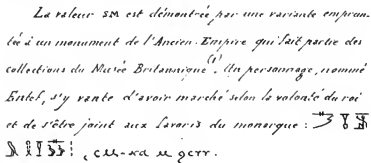 La valeur SM est démontrée par une variante emprun-
tée à un monument de l'Ancien-Empire qui fait partie des
collections du Musée Britannique (1). Un personnage, nommé
Entef, s'y vante d'avoir marché selon la volonté du roi
et de s'être joint aux favoris du monarque :